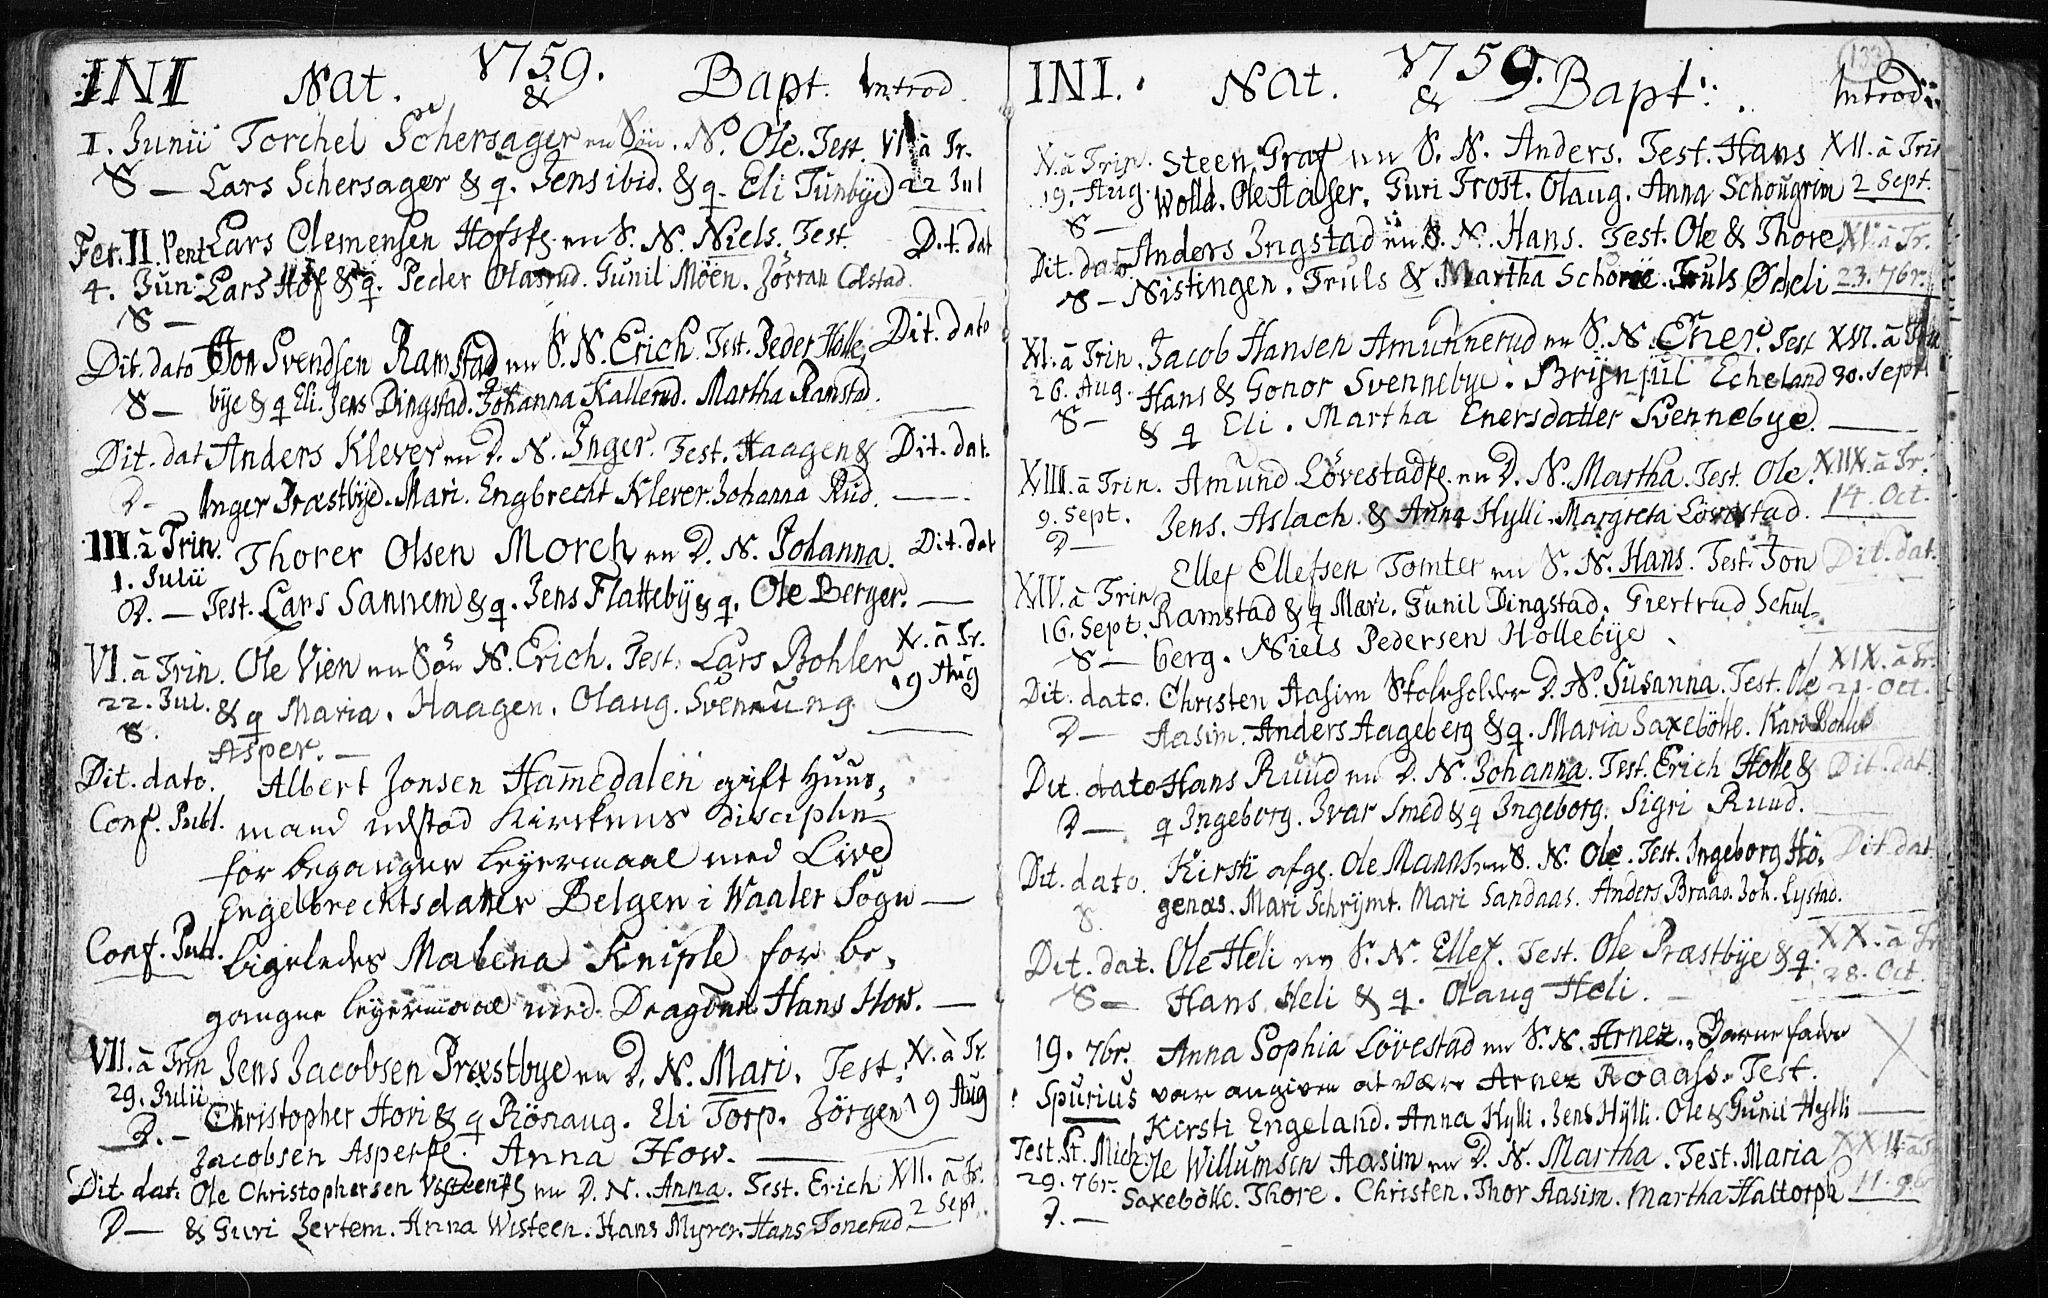 INI Nat. 1759. & Bapt. Introd.
I. Junii Torchel Schersager en Sön. N. Ole. Test. VI. à Tr.
S — Lars Schersager & q. Jens ibid. & q. Eli Tunbye 22 Jul
Fer. II. Pent. Lars Clemensen Hofsfs. en S. N. Niels. Test. Dit. dat
4. Jun. Lars Hof & q. Peder Olasrud. Gunil Möen. Jörran Colstad.
S —
Dit. dato Jon Svendsen Ramstad en S. N. Erich. Test. Peder Holle, Dit. dato
S — bye & q Eli. Jens Dingstad. Johanna Kallerud. Martha Ramstad.
Dit. dat Anders Klever en D. N. Inger. Test. Haagen & Dit. dat.
D — Inger Præstbye. Mari. Engbrecht Klever. Johanna Rud.
III. à Trin. Thorer Olsen Morch en D. N. Johanna. Dit. dat
1. Julii
D. — Test. Lars Sannem & q. Jens Flattebÿ & q. Ole Berger. —
VI. à Trin. Ole Vien en Sön N. Erich. Test. Lars Bohler X. à Tr.
22. Jul. & q Maria. Haagen. Olaug. Svennung 19 Aug
S. Asper. —
Dit. dato. Albert Jonsen Hamedalen gift Huus,
Conf. Publ. mand udstod Kirkens disciplin
for begangne leyermaal med Live
Engelbrechtsdatter Belgen i Waaler Sogn —
Conf. Publ. Ligeledes Malena Kniple for be,
gangne leyermaal med Dragoun Hans How. —
VII. à Trin Jens Jacobsen Præstbye en D. N. Mari. Test. X. à Tr.
29. Julii Christopher Hovi & q Rönaug. Eli Torp. Jörgen 19 Aug
D. — Jacobsen Asperfs. Anna How. —
Dit. dat. Ole Christophersen Visteenfs en D. N. Anna. Test. Erich XII. à Tr.
D — & Guri Jertem. Anna Wisteen. Hans Myrer. Hans Tonerud 2 Sept
INI. Nat. 1759. & Bapt. Introd. 133
X. à Trin. Steen Graf en S. N. Anders. Test. Hans XII. à Trin
19. Aug. Wolld. Ole Haser. Guri Trost. Olaug. Anna Schougrim 2 Sept.
S —
Dit. dato. Anders Ingstad en S. N. Hans. Test. Ole & Thore XV. à Tr.
S — Nistingen. Truls & Martha Schorie. Truls Ødeli 23. 7br.
XI. à Trin. Jacob Hansen Amunnerud en S. N. Ener. Test XVI. à Trin
26. Aug. Hans & Gonor Svennebye. Brÿnjul Echeland 30. Sept
S — & q Eli. Martha Enersdatter Svennebye. —
XIII. à Trin. Amund Lövestadfs. en D. N. Martha. Test. Ole. XIIX. à Tr.
9. Sept. Jens. Aslach & Anna Hylli. Margreta Lövestad. 14. Oct.
D —
XIV. à Trin Ellef Ellefsen Tomter en S. N. Hans. Test. Jon Dit. dat.
16. Sept. Ramstad & q Mari. Gunil Dingstad. Giertrud Schul-
S — berg. Niels Pedersen Hollebÿe.
Dit. dato. Christen Aasim Skoleholder D. N. Susanna. Test. Ole XIX. à Tr. 21. Oct.
D — Aasim. Anders Aageberg & q. Maria Saxebölle. Kari Bohler
Dit. dato Hans Ruud en D. N. Johanna. Test. Erich Holle & Dit. dat.
D — q Ingeborg. Ivar Smed & q Ingeborg. Sigri Ruud.
Dit. dato. Kirsti afgs. Ole Manns en S. N. Ole. Test. Ingeborg Hö, Dit. dat
S. genæs. Mari Schrÿmt. Mari Sandaas. Anders Braad. Joh. Lystad.
Dit. dat. Ole Heli en S. N. Ellef. Test. Ole Præstbÿe & q. XX. à Tr
S — Hans Heli & q. Olaug Heli. 28. Oct.
19. 7br. Anna Sophia Lövestad en S. N. Arnez. Barnefader
Spurius var angiven at være Arnez Roaas. Test.
Kirsti Engeland. Anna Hylli. Jens Hÿlli. Ole & Gunil Hylli
Test. St. Mich. Ole Willumsen Aasim en D. N. Martha. Test. Maria XXII à Tr
29. 7br. Saxebölle. Thore. Christen. Thor Aasim. Martha Hattorph 11. 9br
D. —